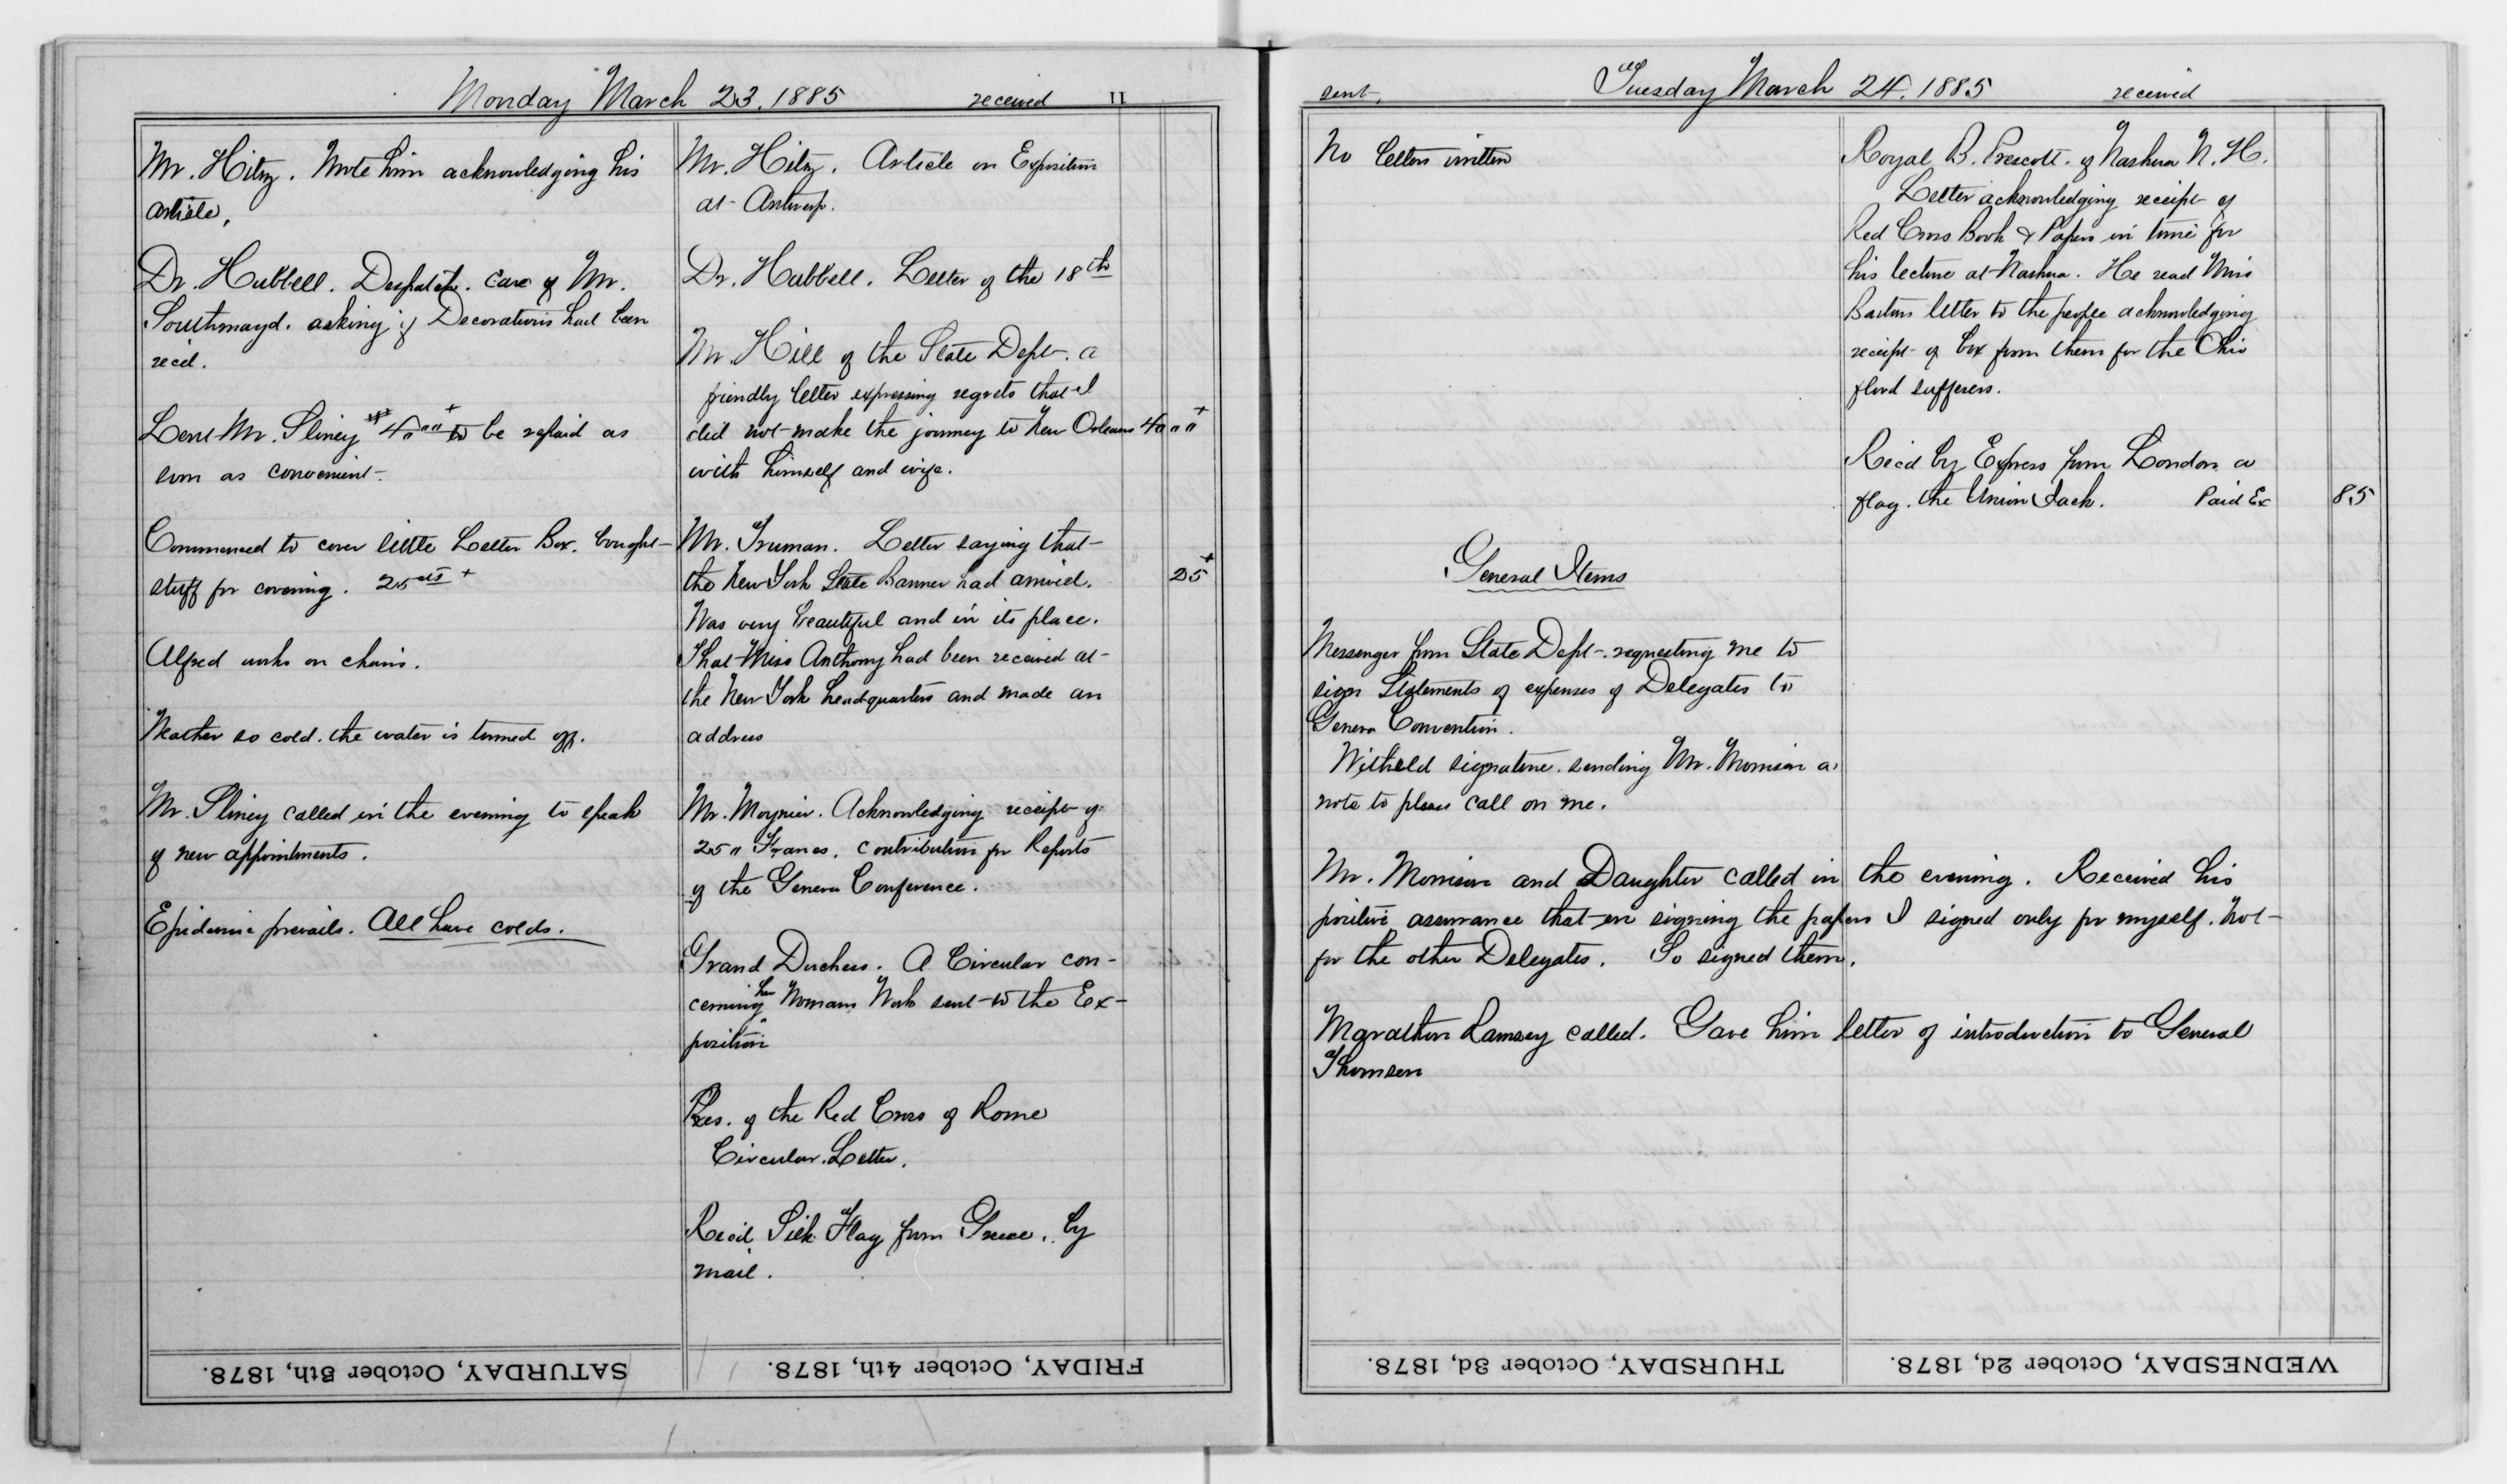 Monday March 23. 1885 received 11
Mr. Hitz. Wrote him acknowledging his
article.
Dr. Hubbell. Despatch. care of Mr.
Southmayd. asking if Decorations had been
recd.
Lent Mr. Sliney $4"00+ to be repaid as
soon as convenient.
Commenced to cover little Letter Box. bought
stuff for covering. 25cts +
Alfred works on chairs.
Weather so cold. the water is turned off.
Mr. Sliney called in the evening to speak
of new appointments.
Epidemic prevails. All have colds.
Mr. Hitz. Article on Exposition
at Antwerp.
Dr. Hubbell. Letter of the 18th
Mr. Hill of the State Dept. a
friendly letter expressing regrets that I
did not make the journey to New Orleans 4"00+
with himself and wife.
Mr. Truman. Letter saying that
the New York State Banner had arrived. 25+
Was very beautiful and in its place.
That Miss Anthony had been received at
the New York headquarters and made an
address
Mr. Moynier. Acknowledging receipt of
25" Francs. contribution for Reports
of the Geneva Conference.
Grand Duchess. A Circular con-
cerning her Womans Work sent to the Ex-
position
Pres. of the Red Cross of Rome
Circular Letter.
Recd. Silk Flag from Greece. by
mail.
SATURDAY, October 5th, 1878.
FRIDAY, October 4th, 1878.
sent. Tuesday March 24. 1885 received
No letters written
Royal B. Prescott. of Nashua N. H.
Letter acknowledging receipt of
Red Cross Book & Papers in time for
his lecture at Nashua. He read Miss
Bartons letter to the people acknowledging
receipt of box from them for the Ohio
flood sufferers.
Recd by Express from London a
flag. the Union Jack. Paid Ex 85
General Items
Messenger from State Dept. requesting me to
sign Statements of expenses of Delegates to
Geneva Convention.
Witheld signature. sending Mr. Morrison a
note to please call on me.
Mr. Morrison and Daughter called in the evening. Received his
positive assurance that in signing the papers I signed only for myself. not
for the other Delegates. So signed them.
Marathon Ramsey called. Gave him letter of introduction to General
Thomson
THURSDAY, October 3d, 1878.
WEDNESDAY, October 2d, 1878.